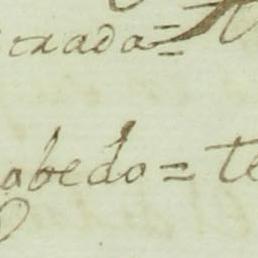 trada= t
abedo= te